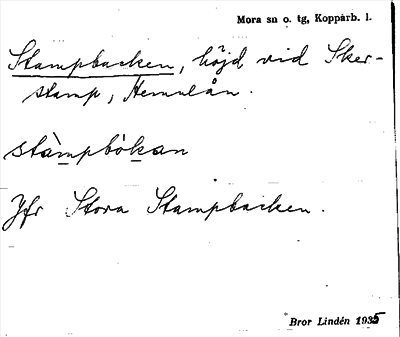 Mora sn o. tg, Kopparb. l.
Stampbacken, höjd vid Sker-
stamp, Hemulån.
stàmpbökan
Jfr Stora Stampbacken.
Bror Lindén 1935